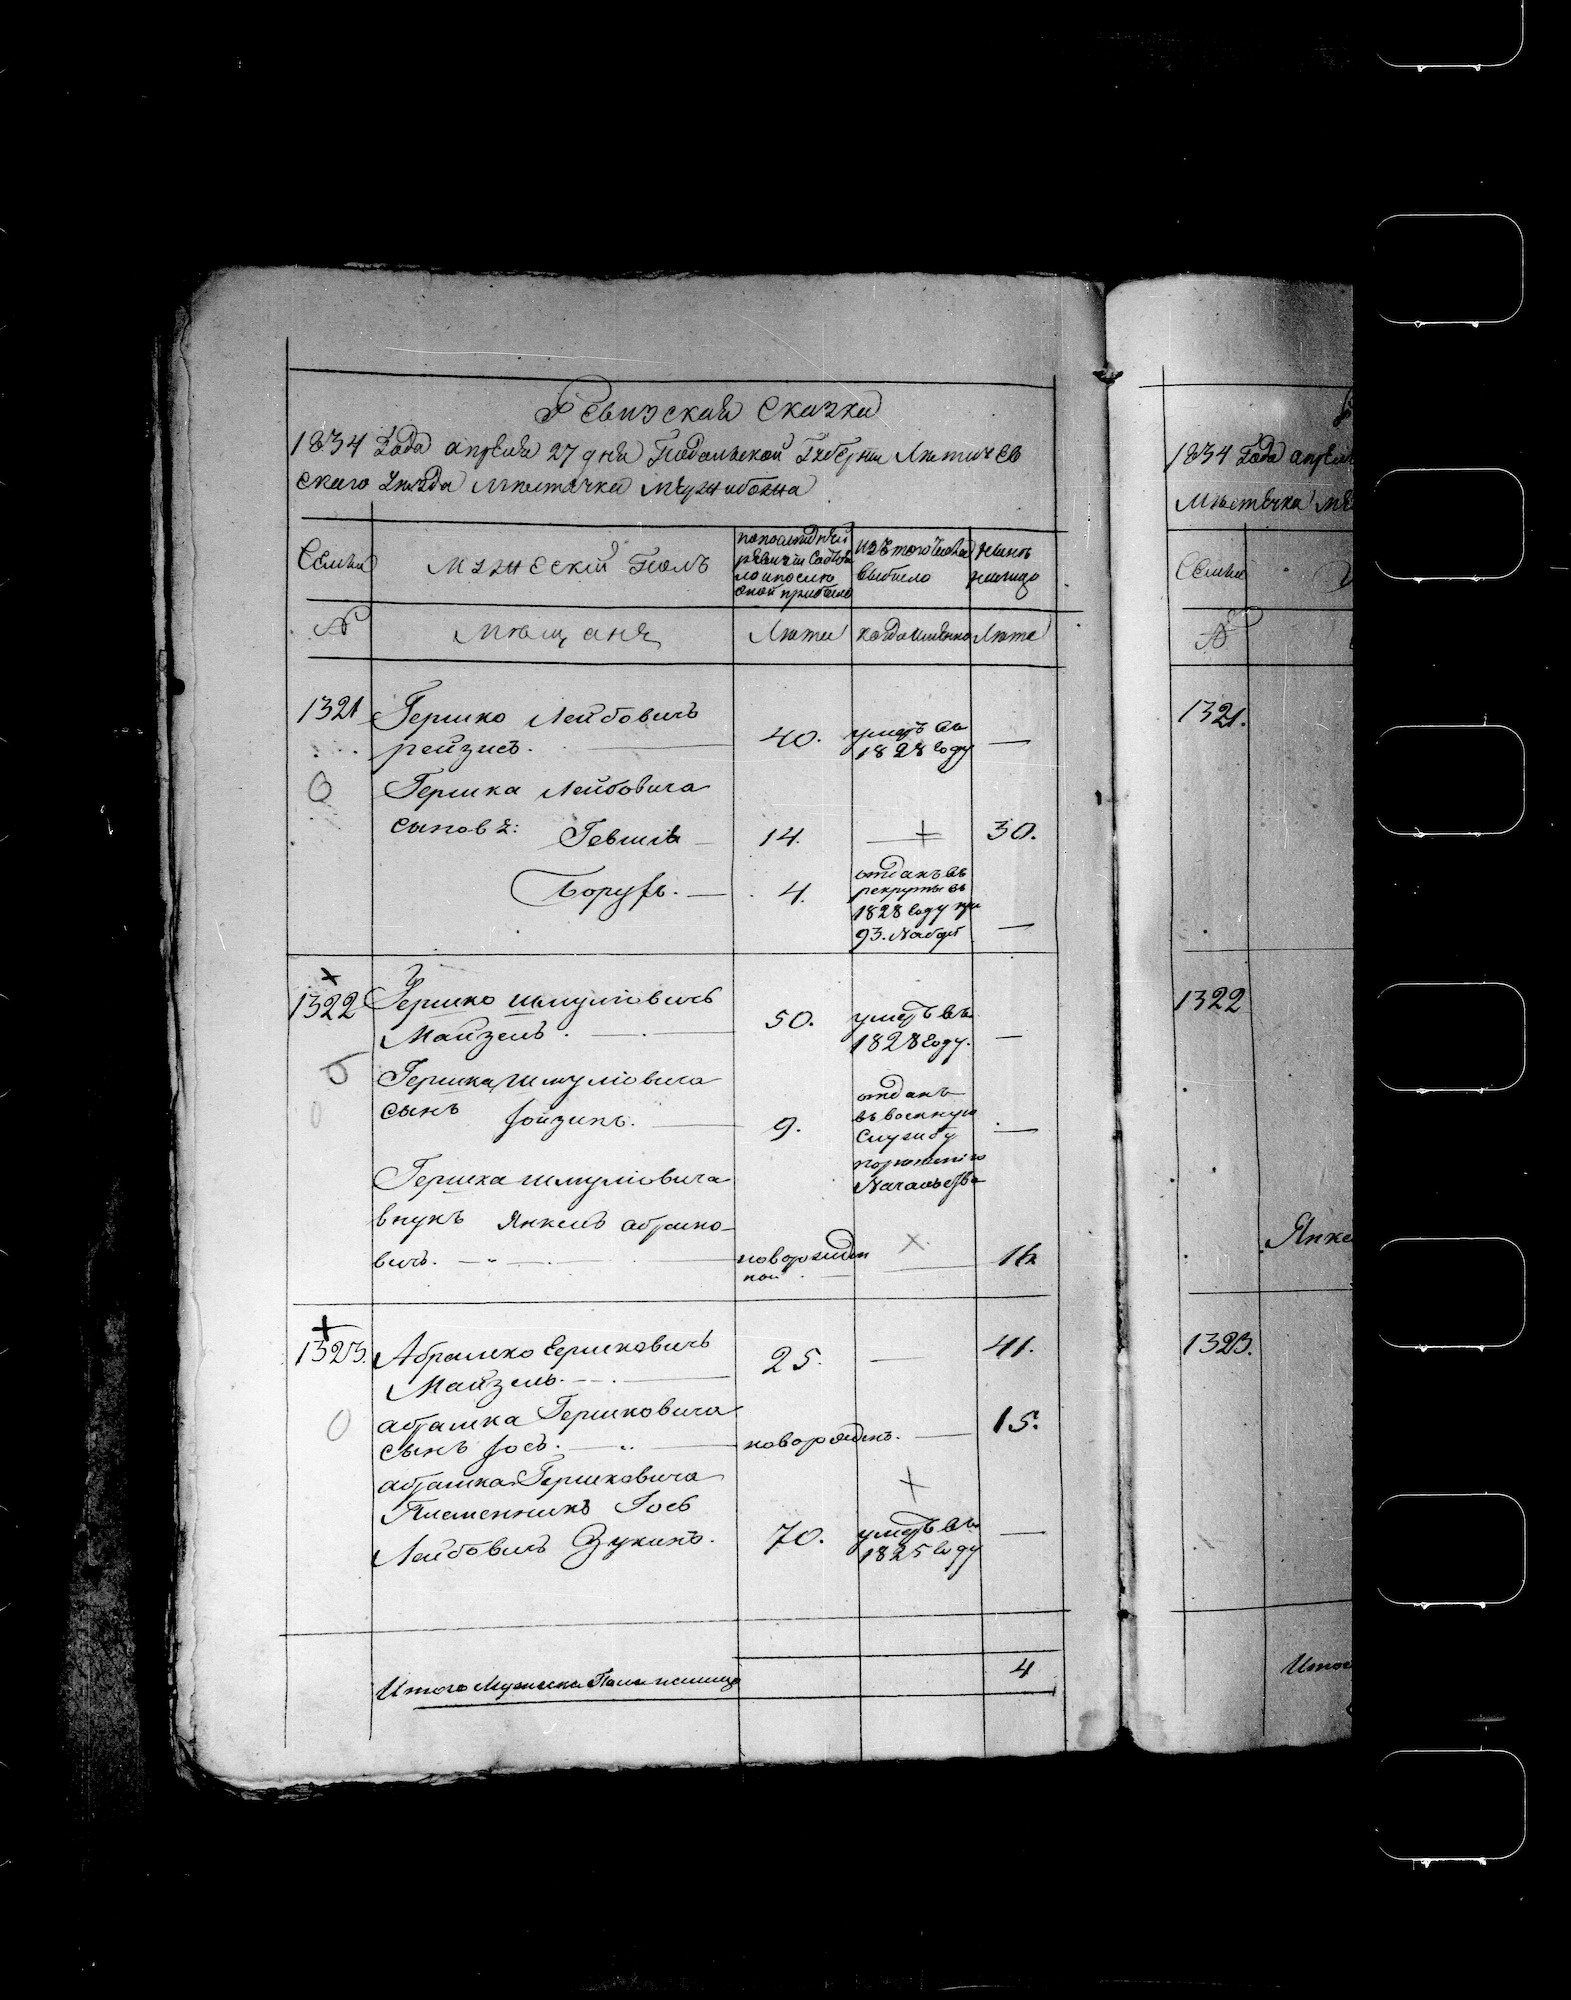 Ревизская Сказка
1834 Года апреля 27 дня Подольской Губернии Летичев
скаго Уезда Местечка Меджибожа
Семьи
Мужескій Полъ
по последней
ревизіи состоя
ло и после
оной прибыло
изъ того числа
выбыло
ныне
налицо
№
Мещане
Лета
когда именно
Лета
1321
Гершко Лейбовичъ
рейзисъ.
40.
умеръ въ
1828 Году
—
Гершка Лейбовича
сыновя: Гевшія
14.
30.
Борухъ.
4.
отданъ въ
рекруты въ
1828 Году при
93. Наборе
—
1322
Гершко Шмуліовичъ
Майзель.
50.
умеръ въ
1828 Году.
—
Гершка Шмуліовича
сынъ Іойзипъ.
9.
отданъ
въ военную
Службу
Начальства
—
Гершка Шмуліовича
внукъ Янкель абрамко-
вичъ.
новорожден
ной
16
1323.
Абрамко Гершковичъ
Майзель.
25.
—
41.
абрамка Гершковича
сынъ Іосъ.
новорожденъ.
—
15.
абрамка Гершковича
Племенникъ Іось
Лейбовичъ Зукинъ.
70.
умеръ въ
1825 Году
—
Итого Мужеска Пола налицо
4
1834 Года апреля
Местечка Ме
Семьи
№
1321.
1322
Янке
1323.
Итого